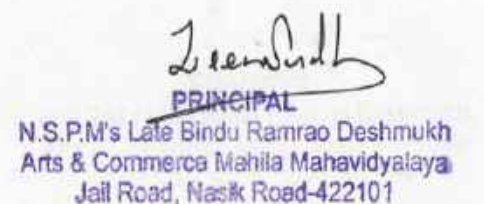 PRINCIPAL
N.S.P.M's Late Bindu Ramrao Deshmukh
Arts & Commerce Mahila Mahavidyalaya
Jail Road, Nasik Road-422101